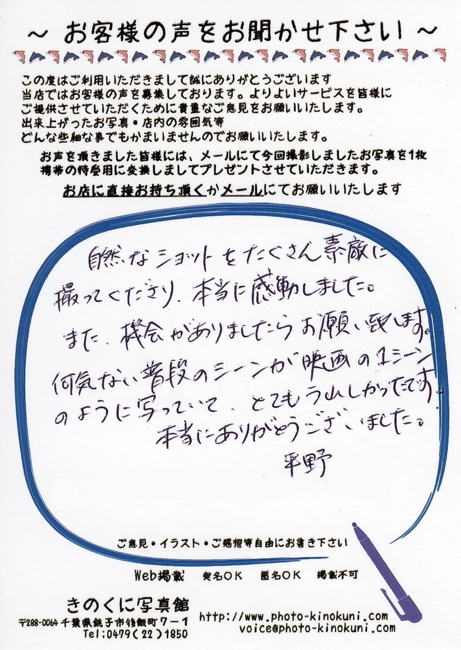 ～ お客様の声をお聞かせ下さい ～
この度はご利用いただきまして誠にありがとうございます
当店ではお客様の声を募集しております。よりよいサービスを皆様に
ご提供させていただくために貴重なご意見をお願いいたします。
出来上がったお写真・店内の雰囲気等
どんな些細な事でもかまいませんのでお願いいたします。
お声を頂きました皆様には、メールにて今回撮影しましたお写真を1枚
携帯の待受用に変換しましてプレゼントさせていただきます。
お店に直接お持ち頂くかメールにてお願いいたします
自然なショットをたくさん素敵に
撮ってくださり、本当に感動しました。
また、機会がありましたらお願い致します。
何気ない普段のシーンが映画の1シーン
のように写っていて、とてもうれしかったです。
本当にありがとうございました。
平野
ご意見・イラスト・ご感想等自由にお書き下さい
Web掲載 実名OK 匿名OK 掲載不可
きのくに写真館
〒288-0064 千葉県銚子市 7-1
Tel:0479(22)1850
http://www.photo-kinokuni.com/
voice@photo-kinokuni.com